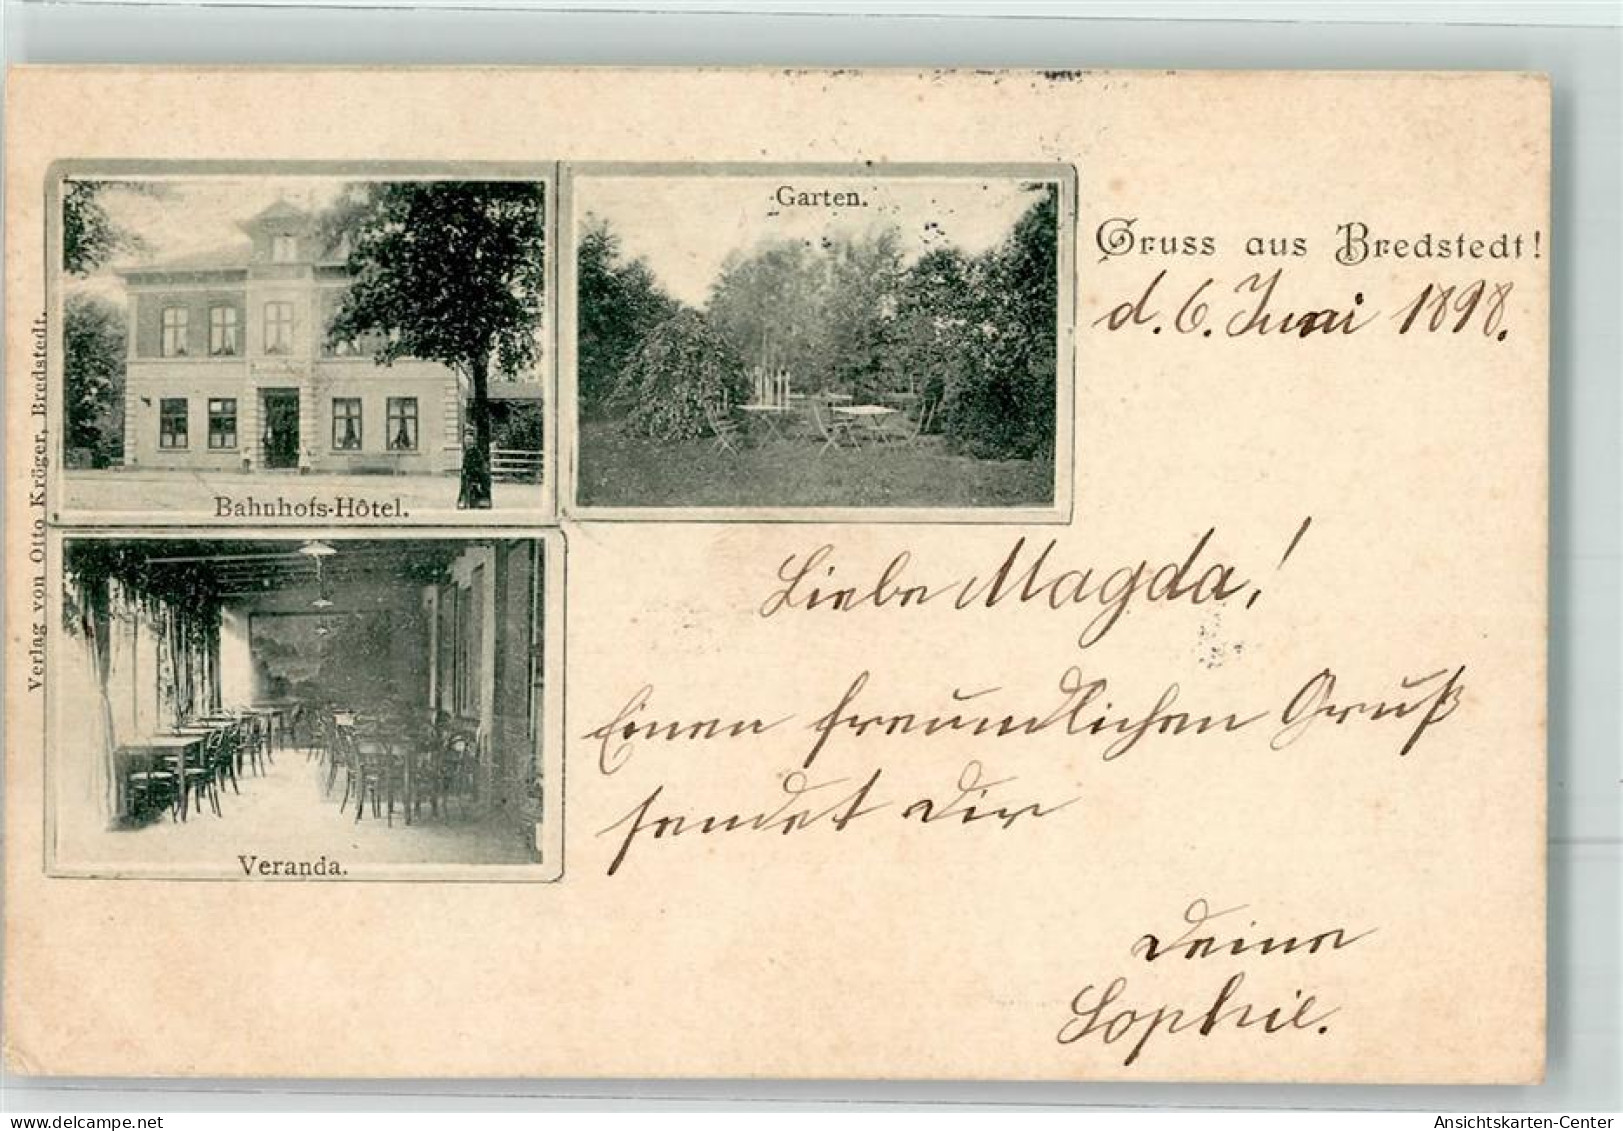 Gruss aus Bredstedt!
d. 6. Juni 1898.
Garten.
Bahnhofs-Hôtel.
Veranda.
Verlag von Otto Kröger, Bredstedt.
Liebe Magda!
Einen freundlichen Gruß
sendet Dir
Deine
Sophie.
delcampe.net
Ansichtskarten-Center